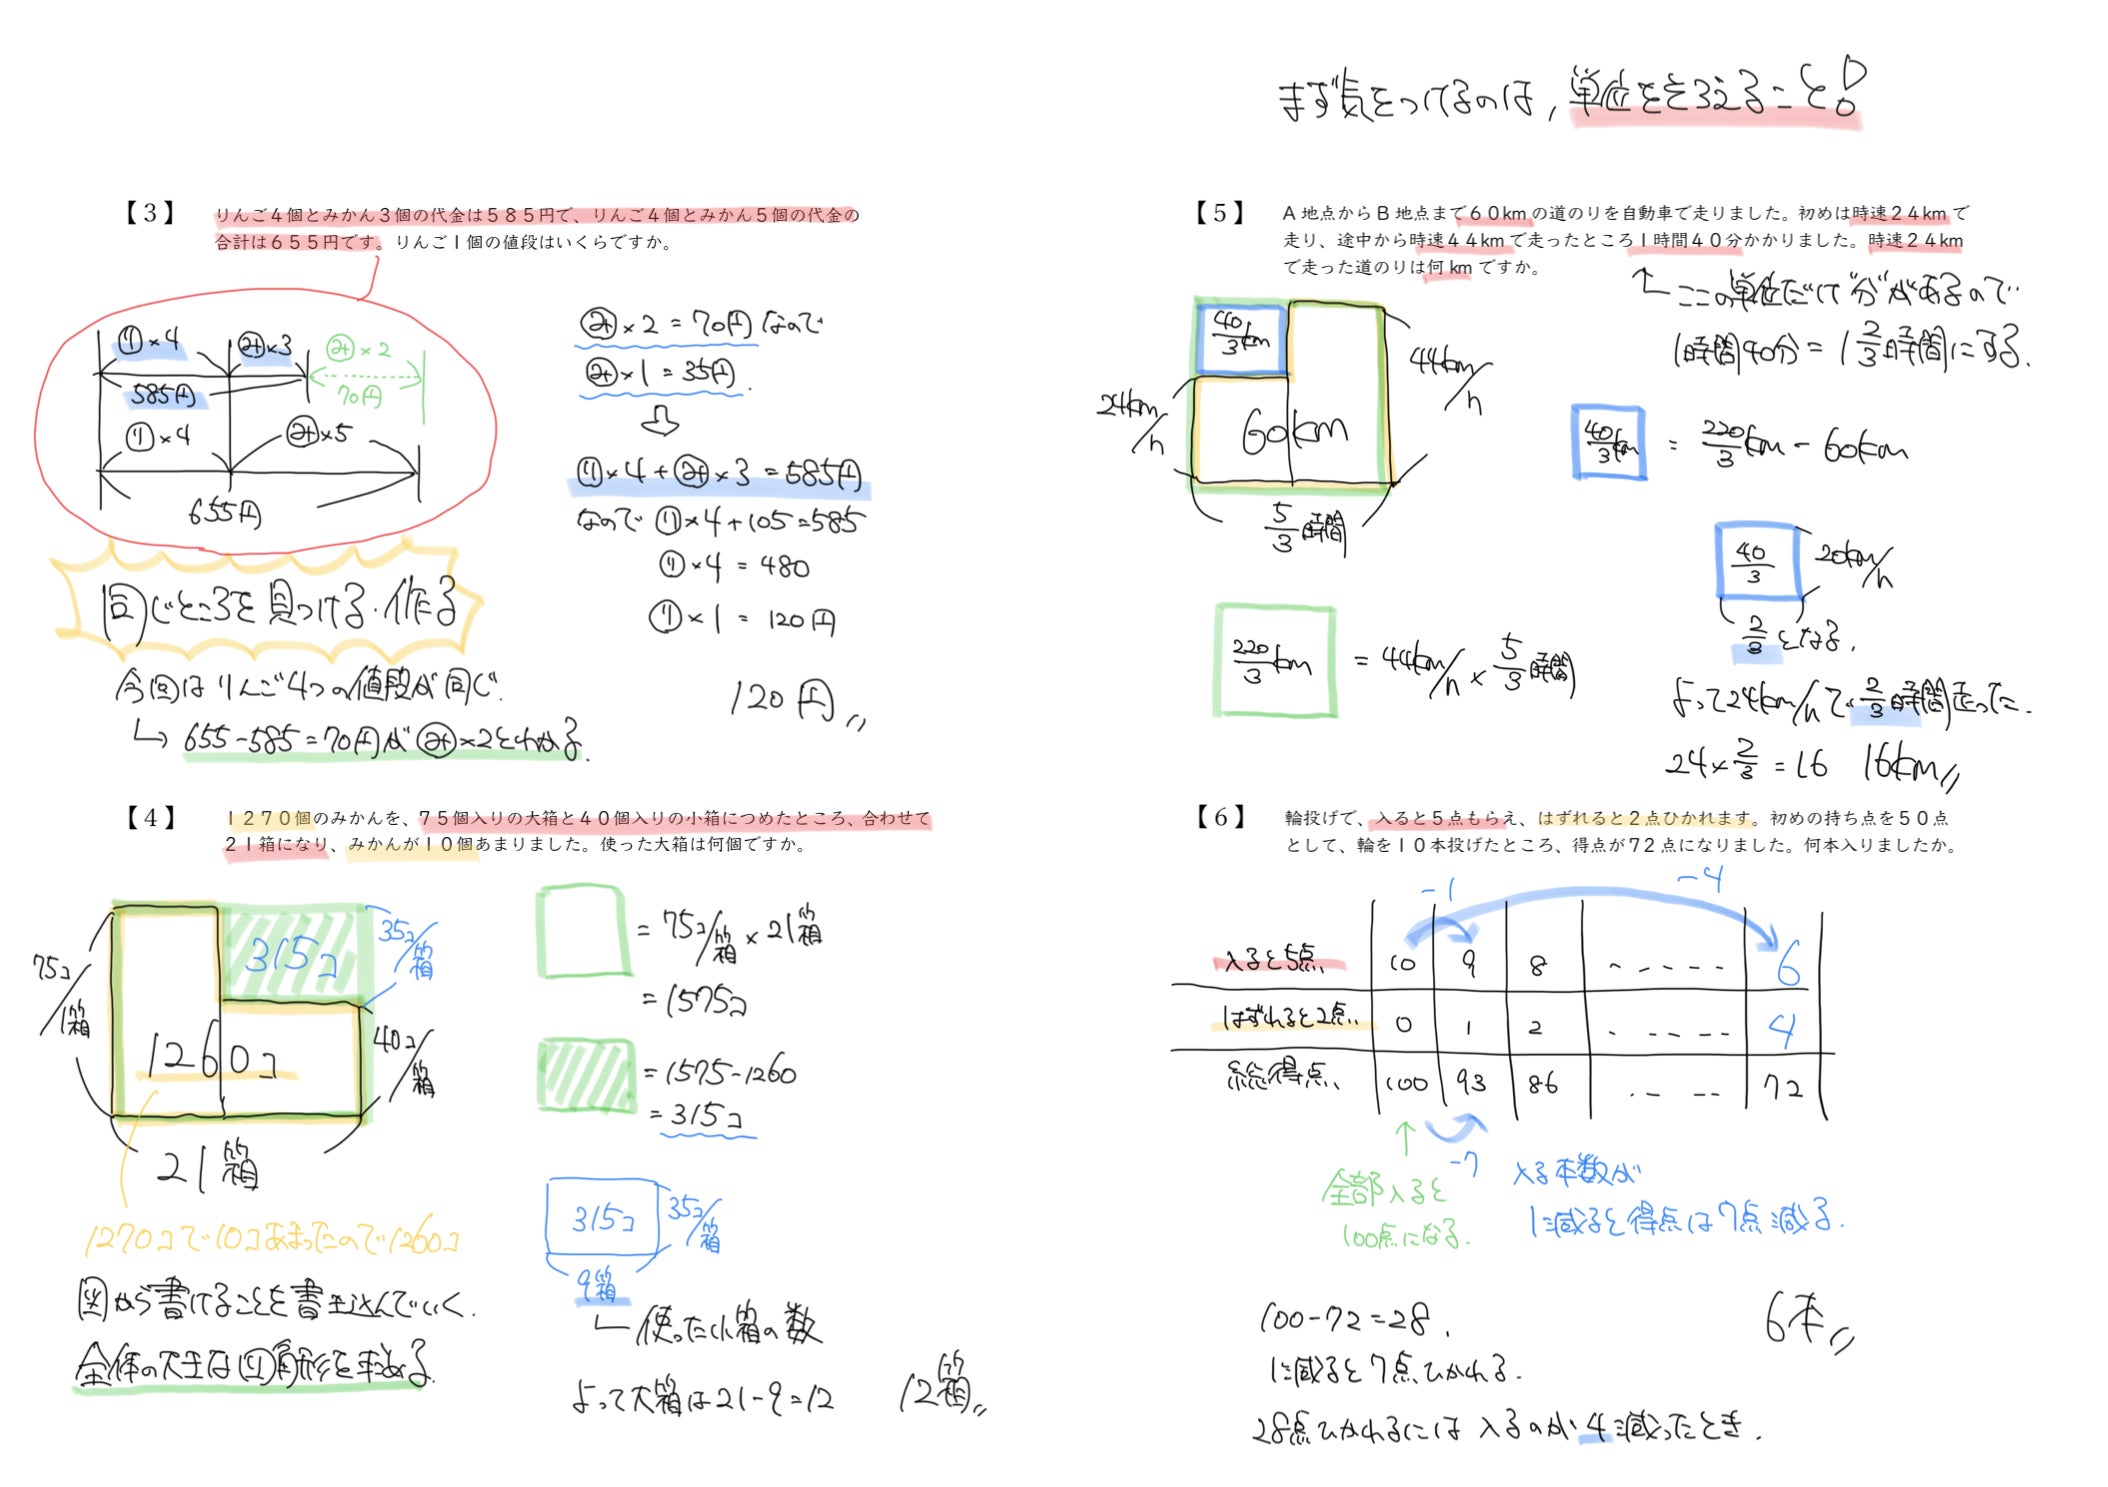 【３】 りんご４個とみかん３個の代金は５８５円で、りんご４個とみかん５個の代金の
合計は６５５円です。りんご１個の値段はいくらですか。
り×4 み×3 み×2
585円 70円
り×4 み×5
655円
同じところを見つける・作る
今回はりんご4つの値段が同じ.
↳ 655-585=70円がみ×2とわかる.
み×2=70円なので
み×1=35円.
⇩
り×4+み×3=585円
なので り×4+105=585
り×4=480
り×1=120円
120円〃
【４】 １２７０個のみかんを、７５個入りの大箱と４０個入りの小箱につめたところ、合わせて
２１箱になり、みかんが１０個あまりました。使った大箱は何個ですか。
315コ 35コ/箱
75コ/1箱
1260コ 40コ/箱
21箱
1270コで10コあまったので1260コ
図から書けることを書き込んでいく.
全体の大きな四角形を求める.
=75コ/箱×21箱
=1575コ
=1575-1260
=315コ
315コ 35コ/箱
9箱
使った小箱の数
よって大箱は21-9=12 12箱〃
まず気をつけるのは,単位をそろえること!
【５】 A 地点から B 地点まで６０km の道のりを自動車で走りました。初めは時速２４km で
走り、途中から時速４４km で走ったところ１時間４０分かかりました。時速２４km
で走った道のりは何 km ですか。
ここの単位だけ"分"があるので
1時間40分=1 2/3時間にする.
40/3km
44km/h
24km/h
60km
5/3時間
40/3km = 220/3km-60km
40/3 20km/h
2/3となる.
220/3km =44km/h×5/3時間
よって24km/hで2/3時間走った.
24×2/3=16 16km〃
【６】 輪投げで、入ると５点もらえ、はずれると２点ひかれます。初めの持ち点を５０点
として、輪を１０本投げたところ、得点が７２点になりました。何本入りましたか。
-1 -4
入ると5点 10 9 8 ----- 6
はずれると2点 0 1 2 ----- 4
総得点 100 93 86 ---- 72
-7
全部入ると
100点になる.
入る本数が
1減ると得点は7点減る.
100-72=28.
1減ると7点ひかれる.
28点ひかれるには入るのが4減ったとき.
6本〃